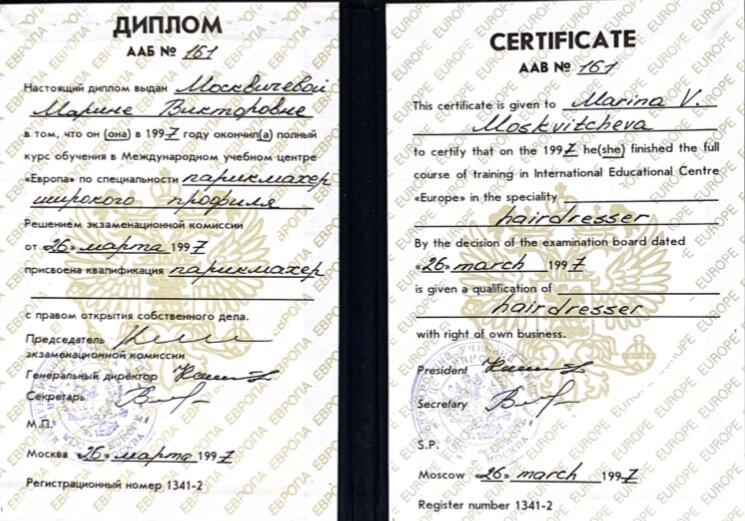 ДИПЛОМ
ААБ № 161
Настоящий диплом выдан Москвичевой
Марине Викторовне
в том, что он (она) в 1997 году окончил(а) полный
курс обучения в Международном учебном центре
«Европа» по специальности парикмахер
широкого профиля
Решением экзаменационной комиссии
от «26» марта 1997
присвоена квалификация парикмахер
с правом открытия собственного дела.
Председатель
экзаменационной комиссии
Генеральный директор
Секретарь
М.П.
Москва «26» марта 1997
Регистрационный номер 1341-2
CERTIFICATE
AAB № 161
This certificate is given to Marina V.
Moskvitcheva
to certify that on the 1997 he(she) finished the full
course of training in International Educational Centre
«Europe» in the speciality
hairdresser
By the decision of the examination board dated
«26» march 1997
is given a qualification of
hairdresser
with right of own business.
President
Secretary
S.P.
Moscow «26» march 1997
Register number 1341-2